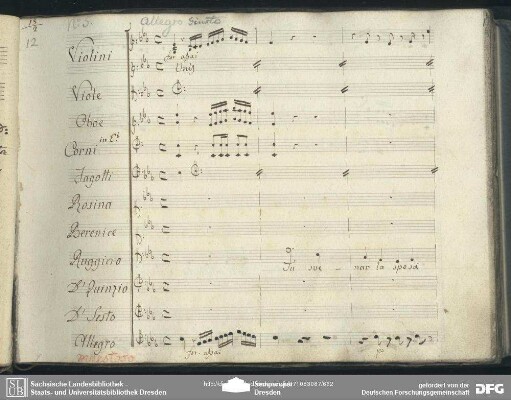 12
N: 5.
Allegro Giusto
Violini
for assai
Unis
Viole
Oboe
Corni in E♭
Fagotti
Rosina
Berenice
Ruggiero
Tu sve - nar la sposa
Dn. Quinzio
Dn. Sesto
Allegro
for: assai
SLUB
Sächsische Landesbibliothek
Staats- und Universitätsbibliothek Dresden
gefördert von der
Deutschen Forschungsgemeinschaft
DFG